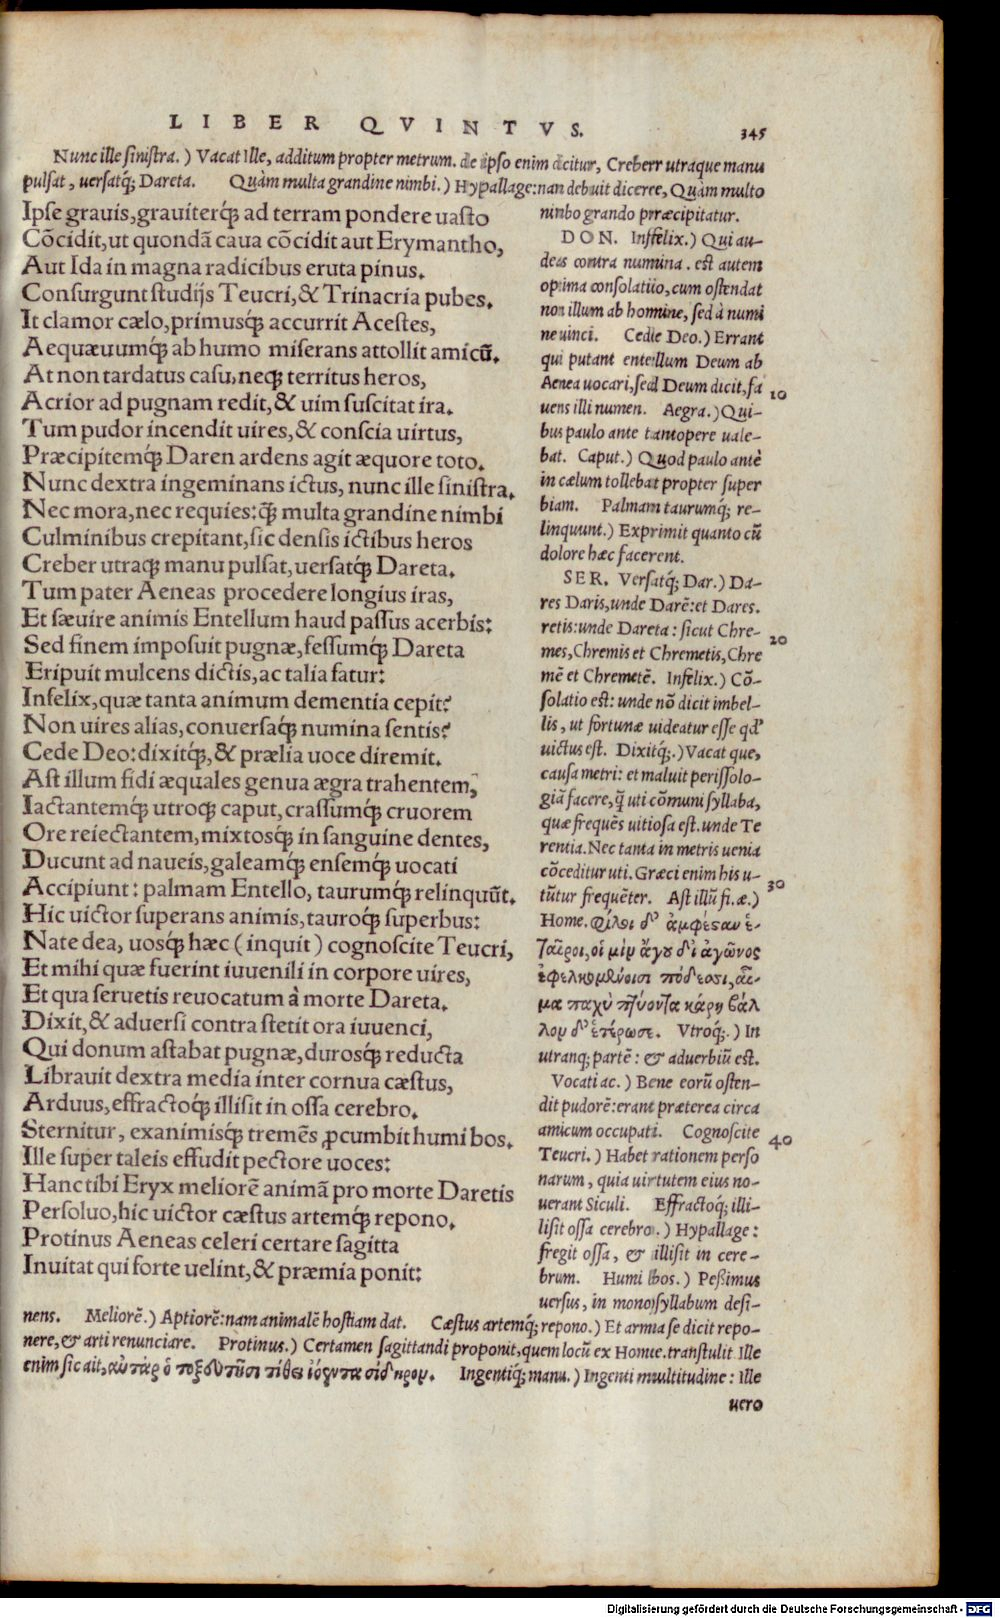 LIBER QVINTVS. 345
Nunc ille sinistra.) Vacat Ille, additum propter metrum. de ipso enim dicitur, Creber utraque manu
pulsat, uersatq́; Dareta. Quàm multa grandine nimbi.) Hypallage: nan debuit dicere, Quàm multo
nimbo grando præcipitatur.
Ipse grauis, grauiterq́; ad terram pondere uasto
Cõcidit, ut quondã caua cõcidit aut Erymantho,
Aut Ida in magna radicibus eruta pinus.
Consurgunt studijs Teucri, & Trinacria pubes.
It clamor cælo, primusq́; accurrit Acestes,
Aequæuumq́; ab humo miserans attollit amicũ.
At non tardatus casu, neq; territus heros,
Acrior ad pugnam redit, & uim suscitat ira. 10
Tum pudor incendit uires, & conscia uirtus,
Præcipitemq́; Daren ardens agit æquore toto.
Nunc dextra ingeminans ictus, nunc ille sinistra.
Nec mora, nec requies: q́; multa grandine nimbi
Culminibus crepitant, sic densis ictibus heros
Creber utraq; manu pulsat, uersatq́; Dareta.
Tum pater Aeneas procedere longius iras,
Et sæuire animis Entellum haud passus acerbis:
Sed finem imposuit pugnæ, fessumq́; Dareta
Eripuit mulcens dictis, ac talia fatur: 20
Infelix, quæ tanta animum dementia cepit?
Non uires alias, conuersaq́; numina sentis?
Cede Deo: dixitq́;, & prælia uoce diremit.
Ast illum fidi æquales genua ægra trahentem,
Iactantemq́; utroq; caput, crassumq́; cruorem
Ore reiectantem, mixtosq́; in sanguine dentes,
Ducunt ad naueis, galeamq́; ensemq́; uocati
Accipiunt: palmam Entello, taurumq́; relinquũt.
Hic uictor superans animis, tauroq́; superbus: 30
Nate dea, uosq́; hæc (inquit) cognoscite Teucri,
Et mihi quæ fuerint iuuenili in corpore uires,
Et qua seruetis reuocatum à morte Dareta.
Dixit, & aduersi contra stetit ora iuuenci,
Qui donum astabat pugnæ, durosq́; reducta
Librauit dextra media inter cornua cæstus,
Arduus, effractoq́; illisit in ossa cerebro.
Sternitur, exanimisq́; tremẽs ꝓcumbit humi bos.
Ille super taleis effudit pectore uoces: 40
Hanc tibi Eryx meliorẽ animã pro morte Daretis
Persoluo, hic uictor cæstus artemq́; repono.
Protinus Aeneas celeri certare sagitta
Inuitat qui forte uelint, & præmia ponit:
DON. Infelix.) Qui au-
des contra numina. est autem
optima consolatiio, cum ostendat
non illum ab homine, sed à numi
ne uinci. Cede Deo.) Errant
qui putant entellum Deum ab
Aenea uocari, sed Deum dicit, fa
uens illi numen. Aegra.) Qui-
bus paulo ante tantopere uale-
bat. Caput.) Quod paulo antè
in cælum tollebat propter super
biam. Palmam taurumq́; re-
linquunt.) Exprimit quanto cũ
dolore hæc facerent.
SER. Versatq́; Dar.) Da-
res Daris, unde Darẽ: et Dares.
retis: unde Dareta: sicut Chre-
mes, Chremis et Chremetis, Chre
mẽ et Chremetẽ. Infelix.) Cõ-
solatio est: unde nõ dicit imbel-
lis, ut fortunæ uideatur esse qd'
uictus est. Dixitq́;.) Vacat que,
causa metri: et maluit perissolo-
giã facere, q̃ uti cõmuni syllaba,
quæ frequẽs uitiosa est. unde Te
rentia. Nec tanta in metris uenia
cõceditur uti. Græci enim his u-
tũtur frequẽter. Ast illũ fi. æ.)
Home. φίλοι δ' ἀμφέσαν ἑ-
ταῖροι, οἱ μιν ἄγον δι' ἀγῶνος
ἐφελκομένοισι πόδεσσι, αἷ-
μα παχὺ πτύοντα κάρη βάλ
λον δ' ἑτέρωσε. Vtroq́;.) In
utranq; partẽ: & aduerbiũ est.
Vocati ac.) Bene eorũ osten-
dit pudorẽ: erant præterea circa
amicum occupati. Cognoscite
Teucri.) Habet rationem perso
narum, quia uirtutem eius no-
uerant Siculi. Effractoq́; illi-
lisit ossa cerebro.) Hypallage:
fregit ossa, & illisit in cere-
brum. Humi bos.) Peßimus
uersus, in monosyllabum desi-
nens. Meliorẽ.) Aptiorẽ: nam animalẽ hostiam dat. Cæstus artemq́; repono.) Et arma se dicit repo-
nere, & arti renunciare. Protinus.) Certamen sagittandi proponit, quem locũ ex Home. transtulit Ille
enim sic ait, αὐτὰρ ὁ τοξευτῇσι τίθει ἰόεντα σίδηρον. Ingentiq́; manu.) Ingenti multitudine: Ille
uero
Digitalisierung gefördert durch die Deutsche Forschungsgemeinschaft - DFG